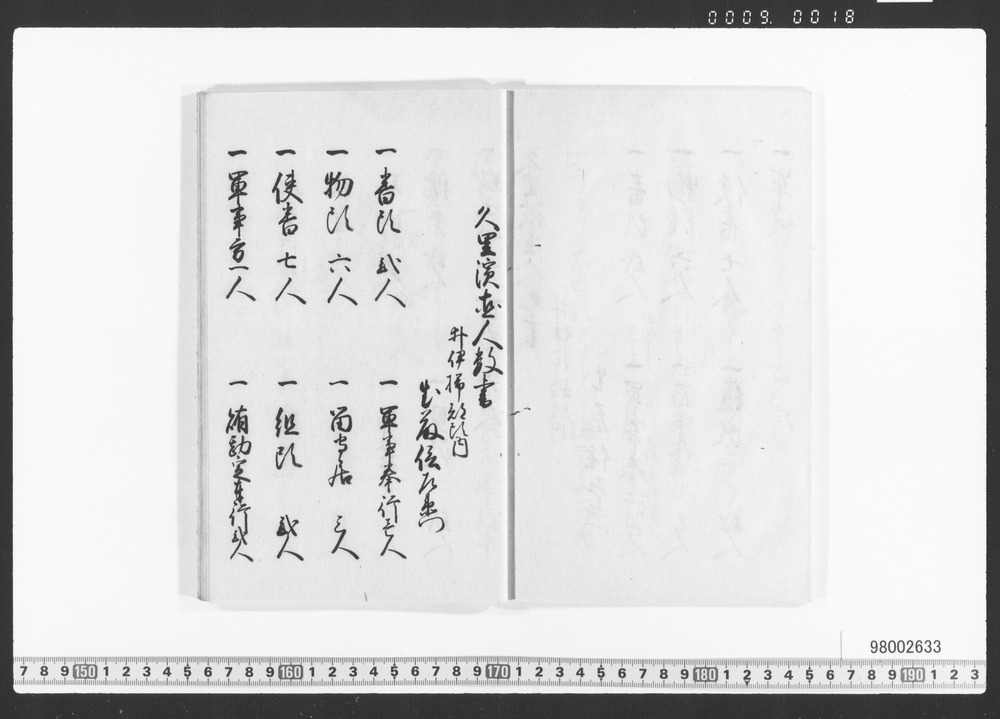 0009. 0018
久里濱出人数書
井伊掃部頭内
一 番頭 弐人
一 軍事奉行壱人
一 物頭 六人
一 留守居 三人
一 使番 七人
一 組頭 弐人
一 軍事方一人
一 賄勘定奉行弐人
98002633
7 8 9 150 1 2 3 4 5 6 7 8 9 160 1 2 3 4 5 6 7 8 9 170 1 2 3 4 5 6 7 8 9 180 1 2 3 4 5 6 7 8 9 190 1 2 3